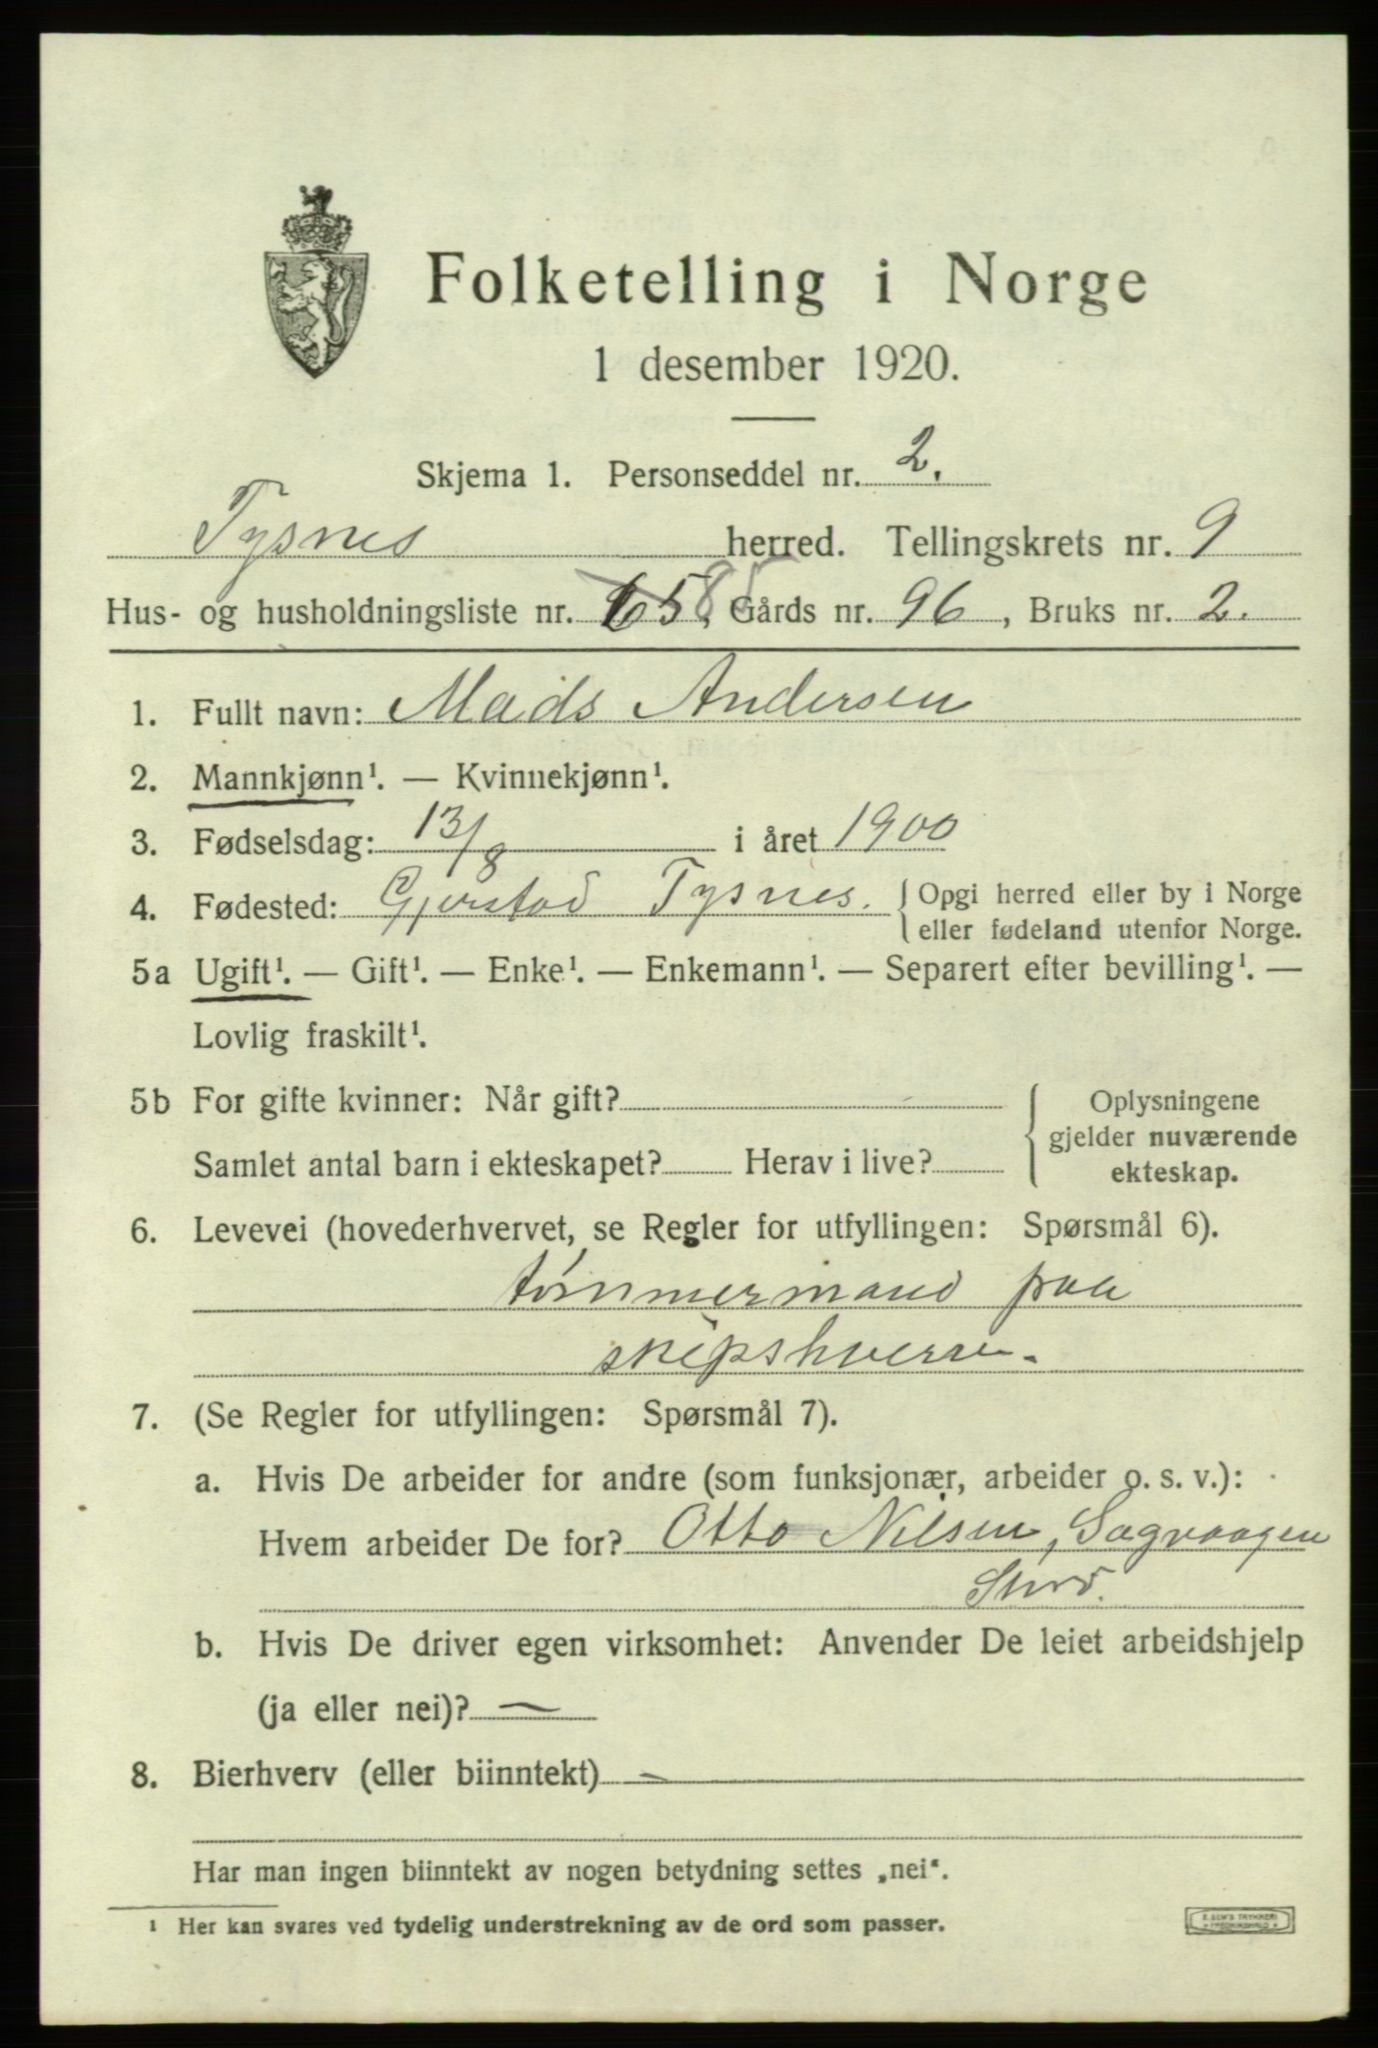 Folketelling i Norge
1 desember 1920.
Skjema 1. Personseddel nr. 2.
Tysnes herred. Tellingskrets nr. 9
Hus- og husholdningsliste nr. 85 Gårds nr. 96, Bruks nr. 2.
1. Fullt navn: Mads Andersen
2. Mannkjønn¹. — Kvinnekjønn¹.
3. Fødselsdag: 13/8 i året 1900
4. Fødested: Gjerstad Tysnes. { Opgi herred eller by i Norge
eller fødeland utenfor Norge.
5a Ugift¹. — Gift¹. — Enke¹. — Enkemann¹. — Separert efter bevilling¹. —
Lovlig fraskilt¹.
5b For gifte kvinner: Når gift?
Samlet antal barn i ekteskapet? Herav i live?
Oplysningene
gjelder nuværende
ekteskap.
6. Levevei (hovederhvervet, se Regler for utfyllingen: Spørsmål 6).
tømmermand paa
skipshverv.
7. (Se Regler for utfyllingen: Spørsmål 7).
a. Hvis De arbeider for andre (som funksjonær, arbeider o. s. v.):
Hvem arbeider De for? Otto Nilsen, Sagvaagen
Stord.
b. Hvis De driver egen virksomhet: Anvender De leiet arbeidshjelp
(ja eller nei)? —
8. Bierhverv (eller biinntekt) —
Har man ingen biinntekt av nogen betydning settes „nei“.
¹ Her kan svares ved tydelig understrekning av de ord som passer.